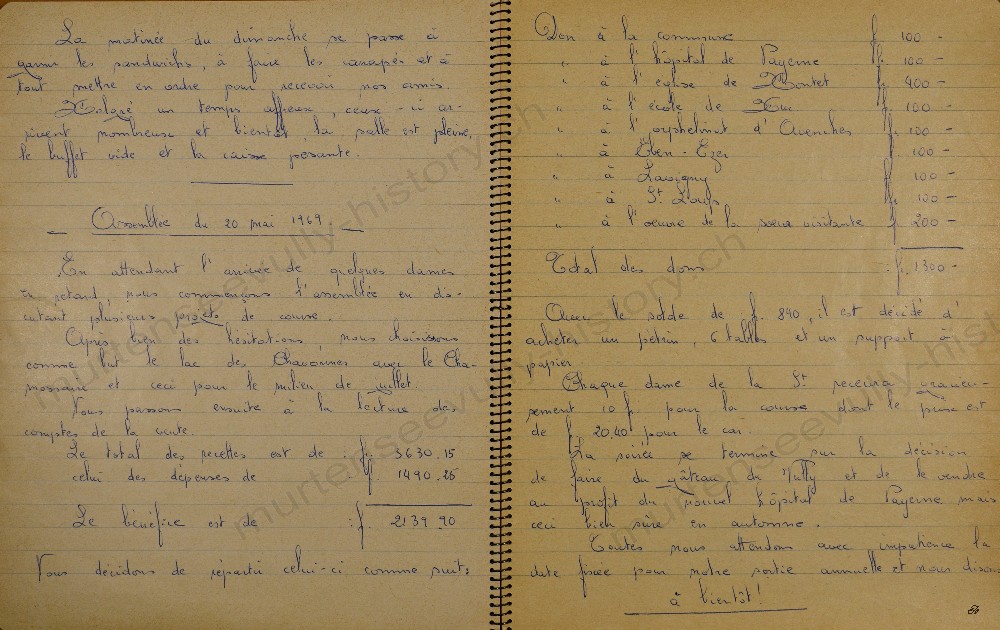 La matinée du dimanche se passe à
garnir les sandwichs, à faire les canapés et à
tout mettre en ordre pour recevoir nos amis.
Malgré un temps affreux, ceux-ci ar-
rivent nombreux et bientôt, la salle est pleine,
le buffet vide et la caisse pesante.
Assemblée du 20 mai 1969.
En attendant l'arrivée de quelques dames
en retard, nous commençons l'assemblée en dis-
cutant plusieurs projets de course.
Après bien des hésitations, nous choisissons
comme but le lac des Chavonnes avec le Cha-
mossaire et ceci pour le milieu de juillet.
Nous passons ensuite à la lecture des
comptes de la vente.
Le total des recettes est de : f. 3630.15
celui des dépenses de f. 1490.25
Le bénéfice est de : f. 2139.90
Nous décidons de répartir celui-ci comme suit:
Don à la commune f. 100 -
" à l'hôpital de Payerne fr. 100 -
" à l'église de Montet f. 400 -
" à l'école de Mur f. 100 -
" à l'orphelinat d'Avenches f. 100 -
" à Eben-Ezer f. 100 -
" à Lavigny f. 100 -
" à St Loup f. 100 -
" à l'oeuvre de la soeur visitante f. 200 -
Total des dons : f. 1300 -
Avec le solde de f. 890, il est décidé d'
acheter un pétrin, 6 tables et un support à
papier.
Chaque dame de la St recevra gracieu-
sement 10 f. pour la course dont le prix est
de f. 20,40 pour le car.
La soirée se termine sur la décision
de faire du gâteau du Vully et de le vendre
au profit du nouvel hôpital de Payerne mais
ceci bien sûre en automne.
Toutes nous attendons avec impatience la
date fixée pour notre sortie annuelle et nous disons
à bientôt!
murtenseevully-history.ch
murtenseevully-history.ch
murtenseevully-history.ch